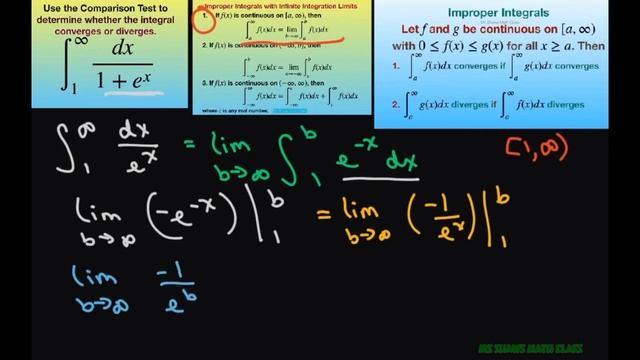 Use the Comparison Test to
determine whether the integral
converges or diverges.
∫₁^∞ dx / (1 + eˣ)
Improper Integrals with Infinite Integration Limits
1. If f(x) is continuous on [a, ∞), then
2. If f(x) is continuous on (−∞, b], then
3. If f(x) is continuous on (−∞, ∞), then
where c is any real number.
Improper Integrals
Let f and g be continuous on [a, ∞)
with 0 ≤ f(x) ≤ g(x) for all x ≥ a. Then
1. ∫ₐ^∞ f(x)dx converges if ∫ₐ^∞ g(x)dx converges
2. ∫ₐ^∞ g(x)dx diverges if ∫ₐ^∞ f(x)dx diverges
∫₁^∞ dx/eˣ = lim b→∞ ∫₁^b e^-x dx [1, ∞)
lim b→∞ (-e^-x) |₁^b = lim b→∞ (-1/eˣ) |₁^b
lim b→∞ -1/e^b
MS SHAWS MATH CLASS